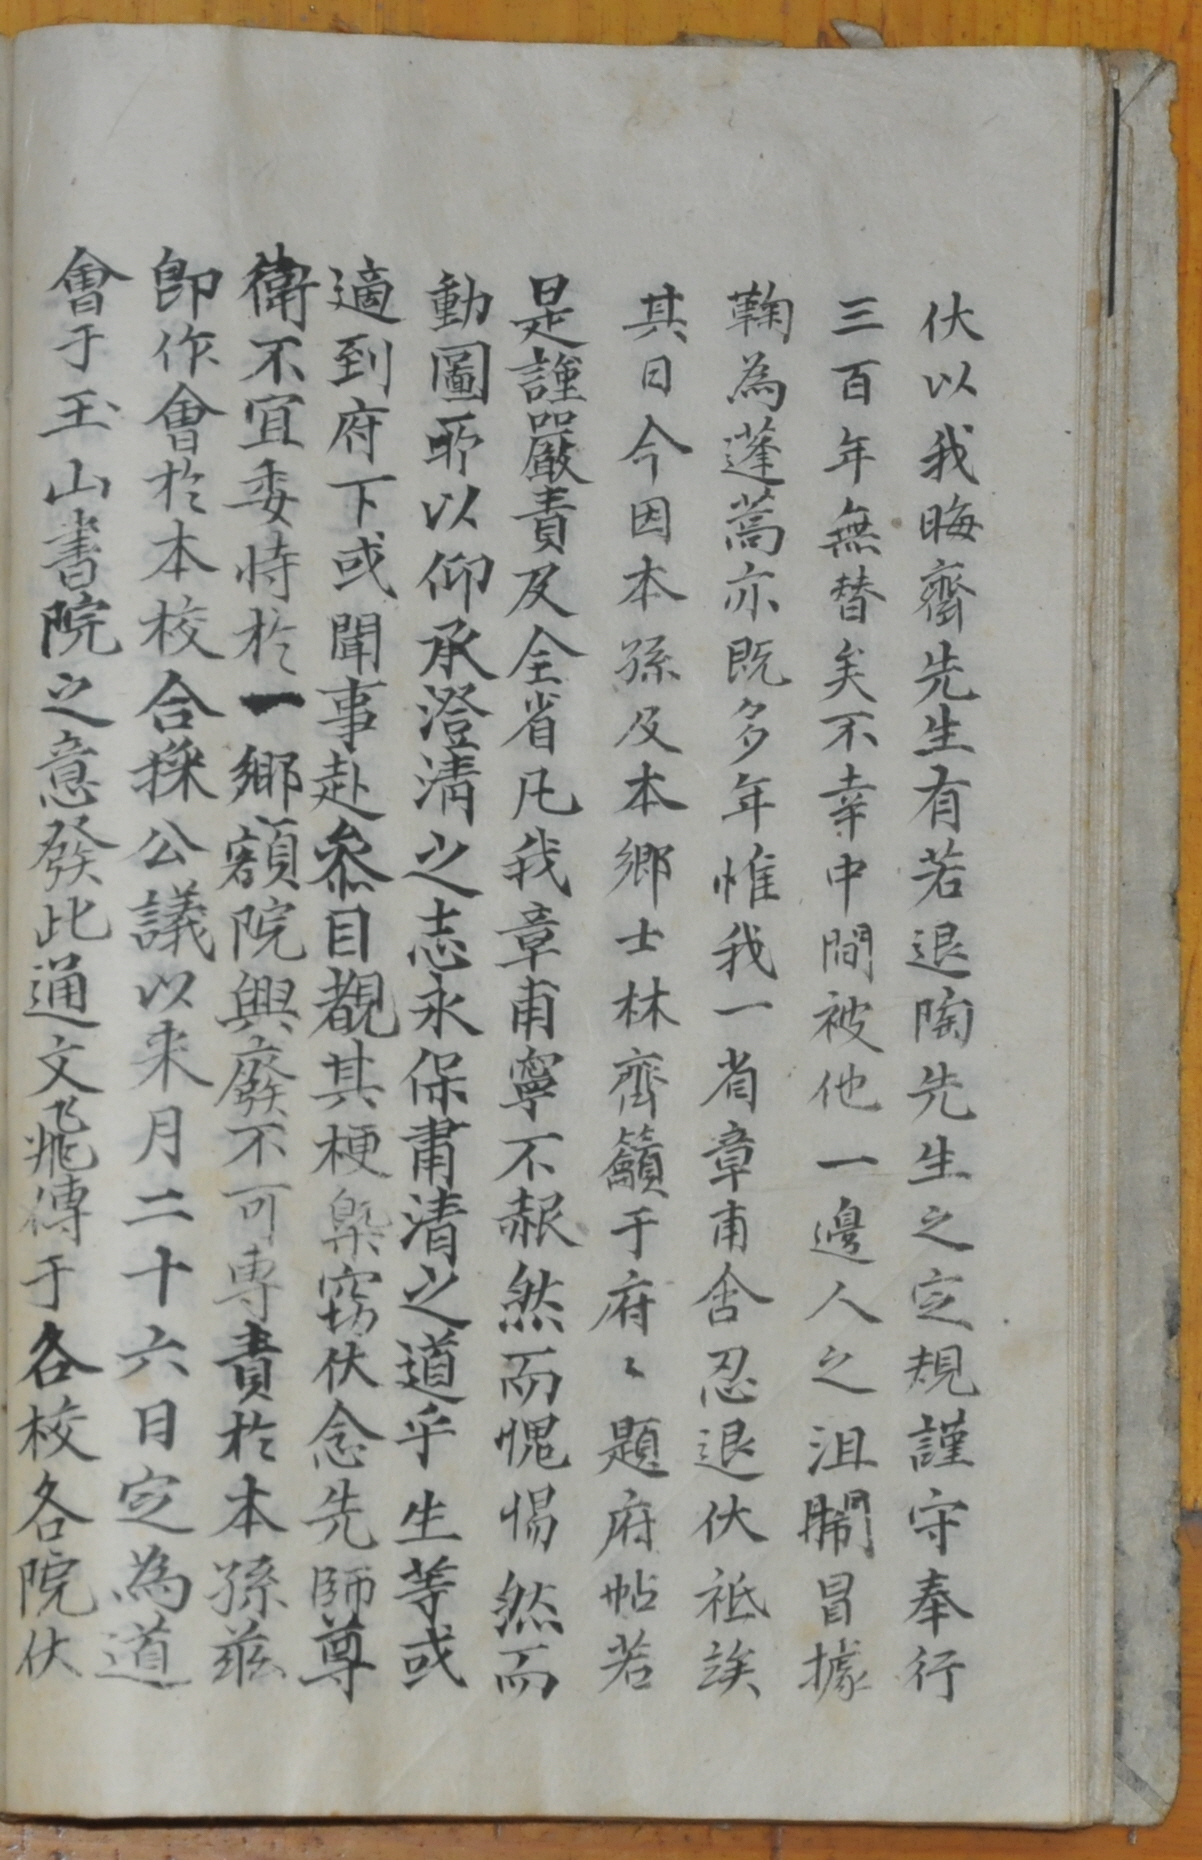 伏以我晦齋先生有若退陶先生之定規謹守奉行
三百年無替矣不幸中間被他一邊人之沮鬧冒據
鞠為蓬蒿亦既多年惟我一省章甫含忍退伏祗俟
其日今因本孫及本鄉士林齊籲于府〻題府帖若
是謹嚴責及全省凡我章甫寧不赧然而愧惕然而
動圖所以仰承澄清之志永保肅清之道乎生等或
適到府下或聞事赴叅目覩其梗槩竊伏念先師尊
衛不宜委恃於一鄉額院興廢不可專責於本孫玆
卽作會於本校合採公議以来月二十六日定為道
會于玉山書院之意發此通文飛傳于各校各院伏